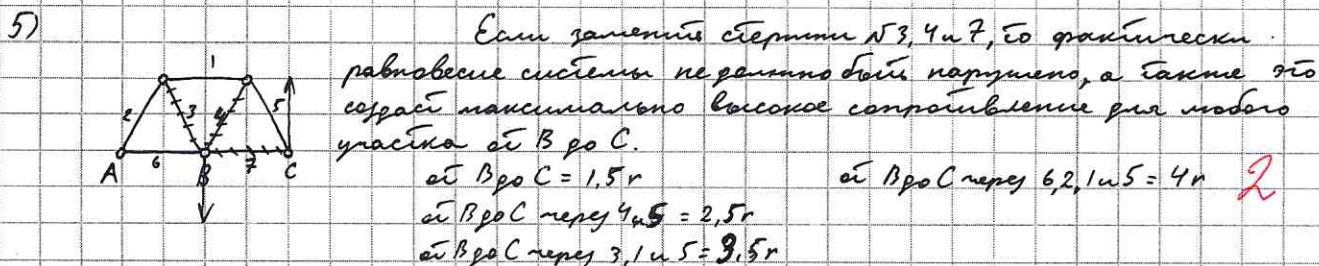 5) Если заменить стержни №3, 4 и 7, то фактически
равновесие системы не должно быть нарушено, а также это
создаст максимально высокое сопротивление для любого
участка от B до C.
от B до C = 1,5 r от B до C через 6,2,1 и 5 = 4r 2
от B до C через 4 и 5 = 2,5r
от B до C через 3,1 и 5 = 3,5r
1
2 3 4 5
6 7
A B C